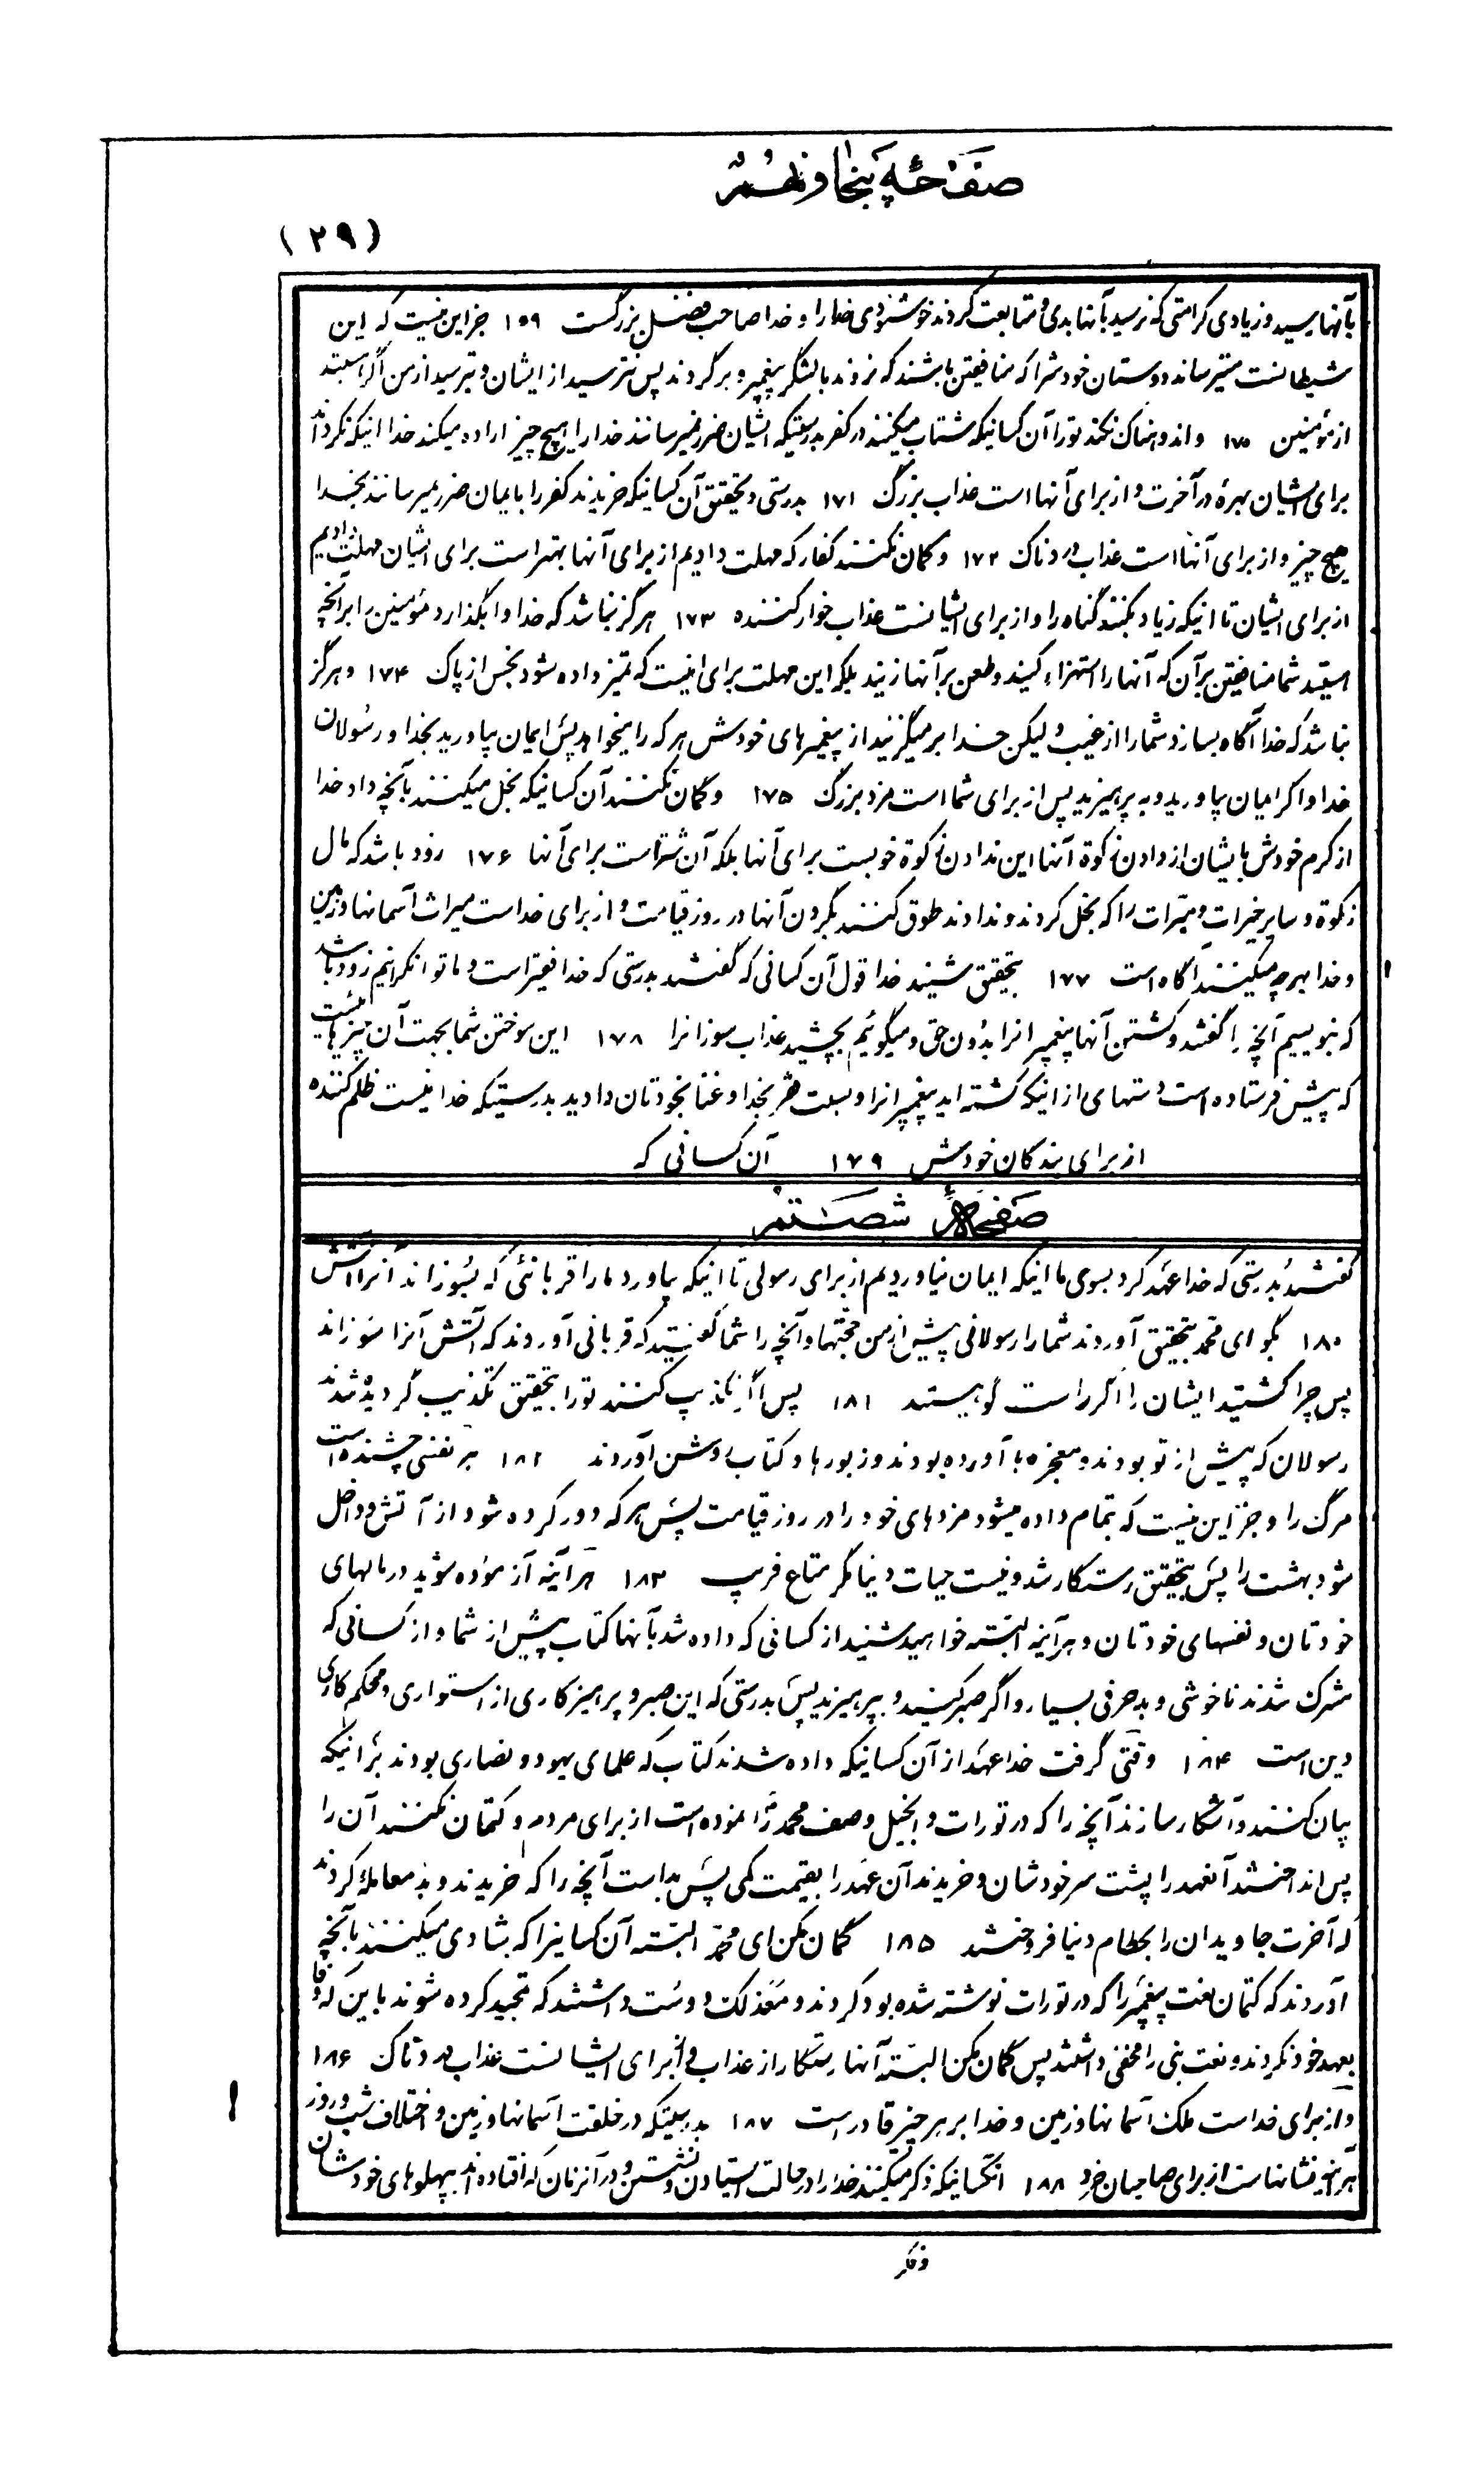 صفحه پنجاه و نهم
(۲۹)
بآنها رسید و زیادی کرامتی که نرسید بآنها بدی و متابعت کردند خوشنودی خدا را و خدا صاحب فضل بزرگست ۱۶۹ جز این نیست که این
شیطانست میترساند دوستان خودش را که منافقین باشند که نروند با لشگر پیغمبر و برگردند پس نترسید از ایشان و بترسید از من اگر هستید
از مؤمنین ۱۷۰ و اندوهناک نکند تو را آن کسانیکه شتاب میکنند در کفر بدرستیکه ایشان ضرر نمیرسانند خدا را هیچ چیز اراده میکند خدا اینکه نگرداند
برای ایشان بهره در آخرت و از برای آنها است عذاب بزرگ ۱۷۱ بدرستی و بتحقیق آن کسانیکه خریدند کفر را بایمان ضرر نمیرسانند بخدا
هیچ چیز و از برای آنها است عذاب دردناک ۱۷۲ و گمان نکنند کفار که مهلت دادیم از برای آنها بهتر است برای ایشان مهلت دادیم
از برای ایشان تا اینکه زیاد بکنند گناه را و از برای ایشانست عذاب خوار کننده ۱۷۳ هرگز نباشد که خدا وا بگذارد مؤمنین را بر آنچه
هستید شما منافقین بر آن که آنها را استهزاء کنید و طعن بر آنها زنید بلکه این مهلت برای اینست که تمیز داده شود نجس از پاک ۱۷۴ و هرگز
نباشد که خدا آگاه بسازد شما را از غیب و لیکن خدا بر میگزیند از پیغمبرهای خودش هر که را میخواهد پس ایمان بیاورید بخدا و رسولان
خدا و اگر ایمان بیاورید و به پرهیزید پس از برای شما است مزد بزرگ ۱۷۵ و گمان نکنند آن کسانیکه بخل میکنند بآنچه داد خدا
از کرم خودش بایشان از دادن زکوة آنها این ندادن زکوة خوبست برای آنها بلکه آن شر است برای آنها ۱۷۶ زود باشد که مال
زکوة و سایر خیرات و مبرات را که بخل کردند و ندادند طوق کنند بگردن آنها در روز قیامت و از برای خداست میراث آسمانها و زمین
و خدا بهر چه میکنند آگاه است ۱۷۷ بتحقیق شنید خدا قول آن کسانی که گفتند بدرستی که خدا فقیر است و ما توانگرانیم زود باشد
که بنویسیم آنچه را گفتند و کشتن آنها پیغمبرانرا بدون حق و میگوئیم بچشید عذاب سوزانرا ۱۷۸ این سوختن شما بجهت آن چیزهائیست
که پیش فرستاده است دستهای از اینکه کشته اید پیغمبرانرا و نسبت فقر بخدا و غنا بخودتان دادید بدرستیکه خدا نیست ظلم کننده
از برای بندگان خودش ۱۷۹ آن کسانی که
صفحه شصتم
گفتند بدرستی که خدا عهد کرد بسوی ما اینکه ایمان نیاوردیم از برای رسولی تا اینکه بیاورد ما را قربانئی که بسوزاند آنرا آتش
۱۸۰ بگو ای محمد بتحقیق آوردند شما را رسولانی پیش از من حجتها و آنچه را شما گفتید که قربانی آوردند که آتش آنرا سوزاند
پس چرا کشتید ایشان را اگر راست گو هستید ۱۸۱ پس اگر تکذیب کنند تو را بتحقیق تکذیب گردیده شدند
رسولان که پیش از تو بودند و معجزه ها آورده بودند و زبورها و کتاب روشن آوردند ۱۸۲ هر نفسی چشنده است
مرگ را و جز این نیست که تمام داده میشود مزدهای خود را در روز قیامت پس هر که دور کرده شود از آتش و داخل
شود بهشت را پس بتحقیق رستکار شد و نیست حیات دنیا مگر متاع فریب ۱۸۳ هر آینه آزموده شوید در مالهای
خودتان و نفسهای خودتان و هر آینه البته خواهید شنید از کسانی که داده شد بآنها کتاب پیش از شما و از کسانی که
مشرک شدند ناخوشی و بد حرفی بسیار و اگر صبر کنید و بپرهیزید پس بدرستی که این صبر و پرهیزکاری از استواری و محکم کاری
دین است ۱۸۴ وقتی گرفت خدا عهد از آن کسانیکه داده شدند کتاب که علمای یهود و نصاری بودند بر اینکه
بیان کنند و آشکار سازند آنچه را که در تورات و انجیل وصف محمد را نموده است از برای مردم و کتمان نکنند آن را
پس انداختند آنعهد را پشت سر خودشان و خریدند آن عهد را بقیمت کمی پس بد است آنچه را که خریدند و بد معامله کردند
که آخرت جاویدان را بحطام دنیا فروختند ۱۸۵ گمان مکن ای محمد البته آن کسانیرا که شادی میکنند بآنچه
آوردند که کتمان نعت پیغمبر را که در تورات نوشته شده بود کردند و مع ذلک دوست داشتند که تمجید کرده شوند باین که وفا
بعهد خود نکردند و نعت نبی را مخفی داشتند پس گمان مکن البته آنها رستکار از عذاب و از برای ایشانست عذاب دردناک ۱۸۶
و از برای خداست ملک آسمانها و زمین و خدا بر هر چیز قادر است ۱۸۷ بدرستیکه در خلقت آسمانها و زمین و اختلاف شب و روز
هر آینه نشانهاست از برای صاحبان خرد ۱۸۸ آنکسانیکه ذکر میکنند خدا را در حالت ایستادن و نشستن و در آنزمان که افتاده اند بپهلوهای خودشان
و فکر